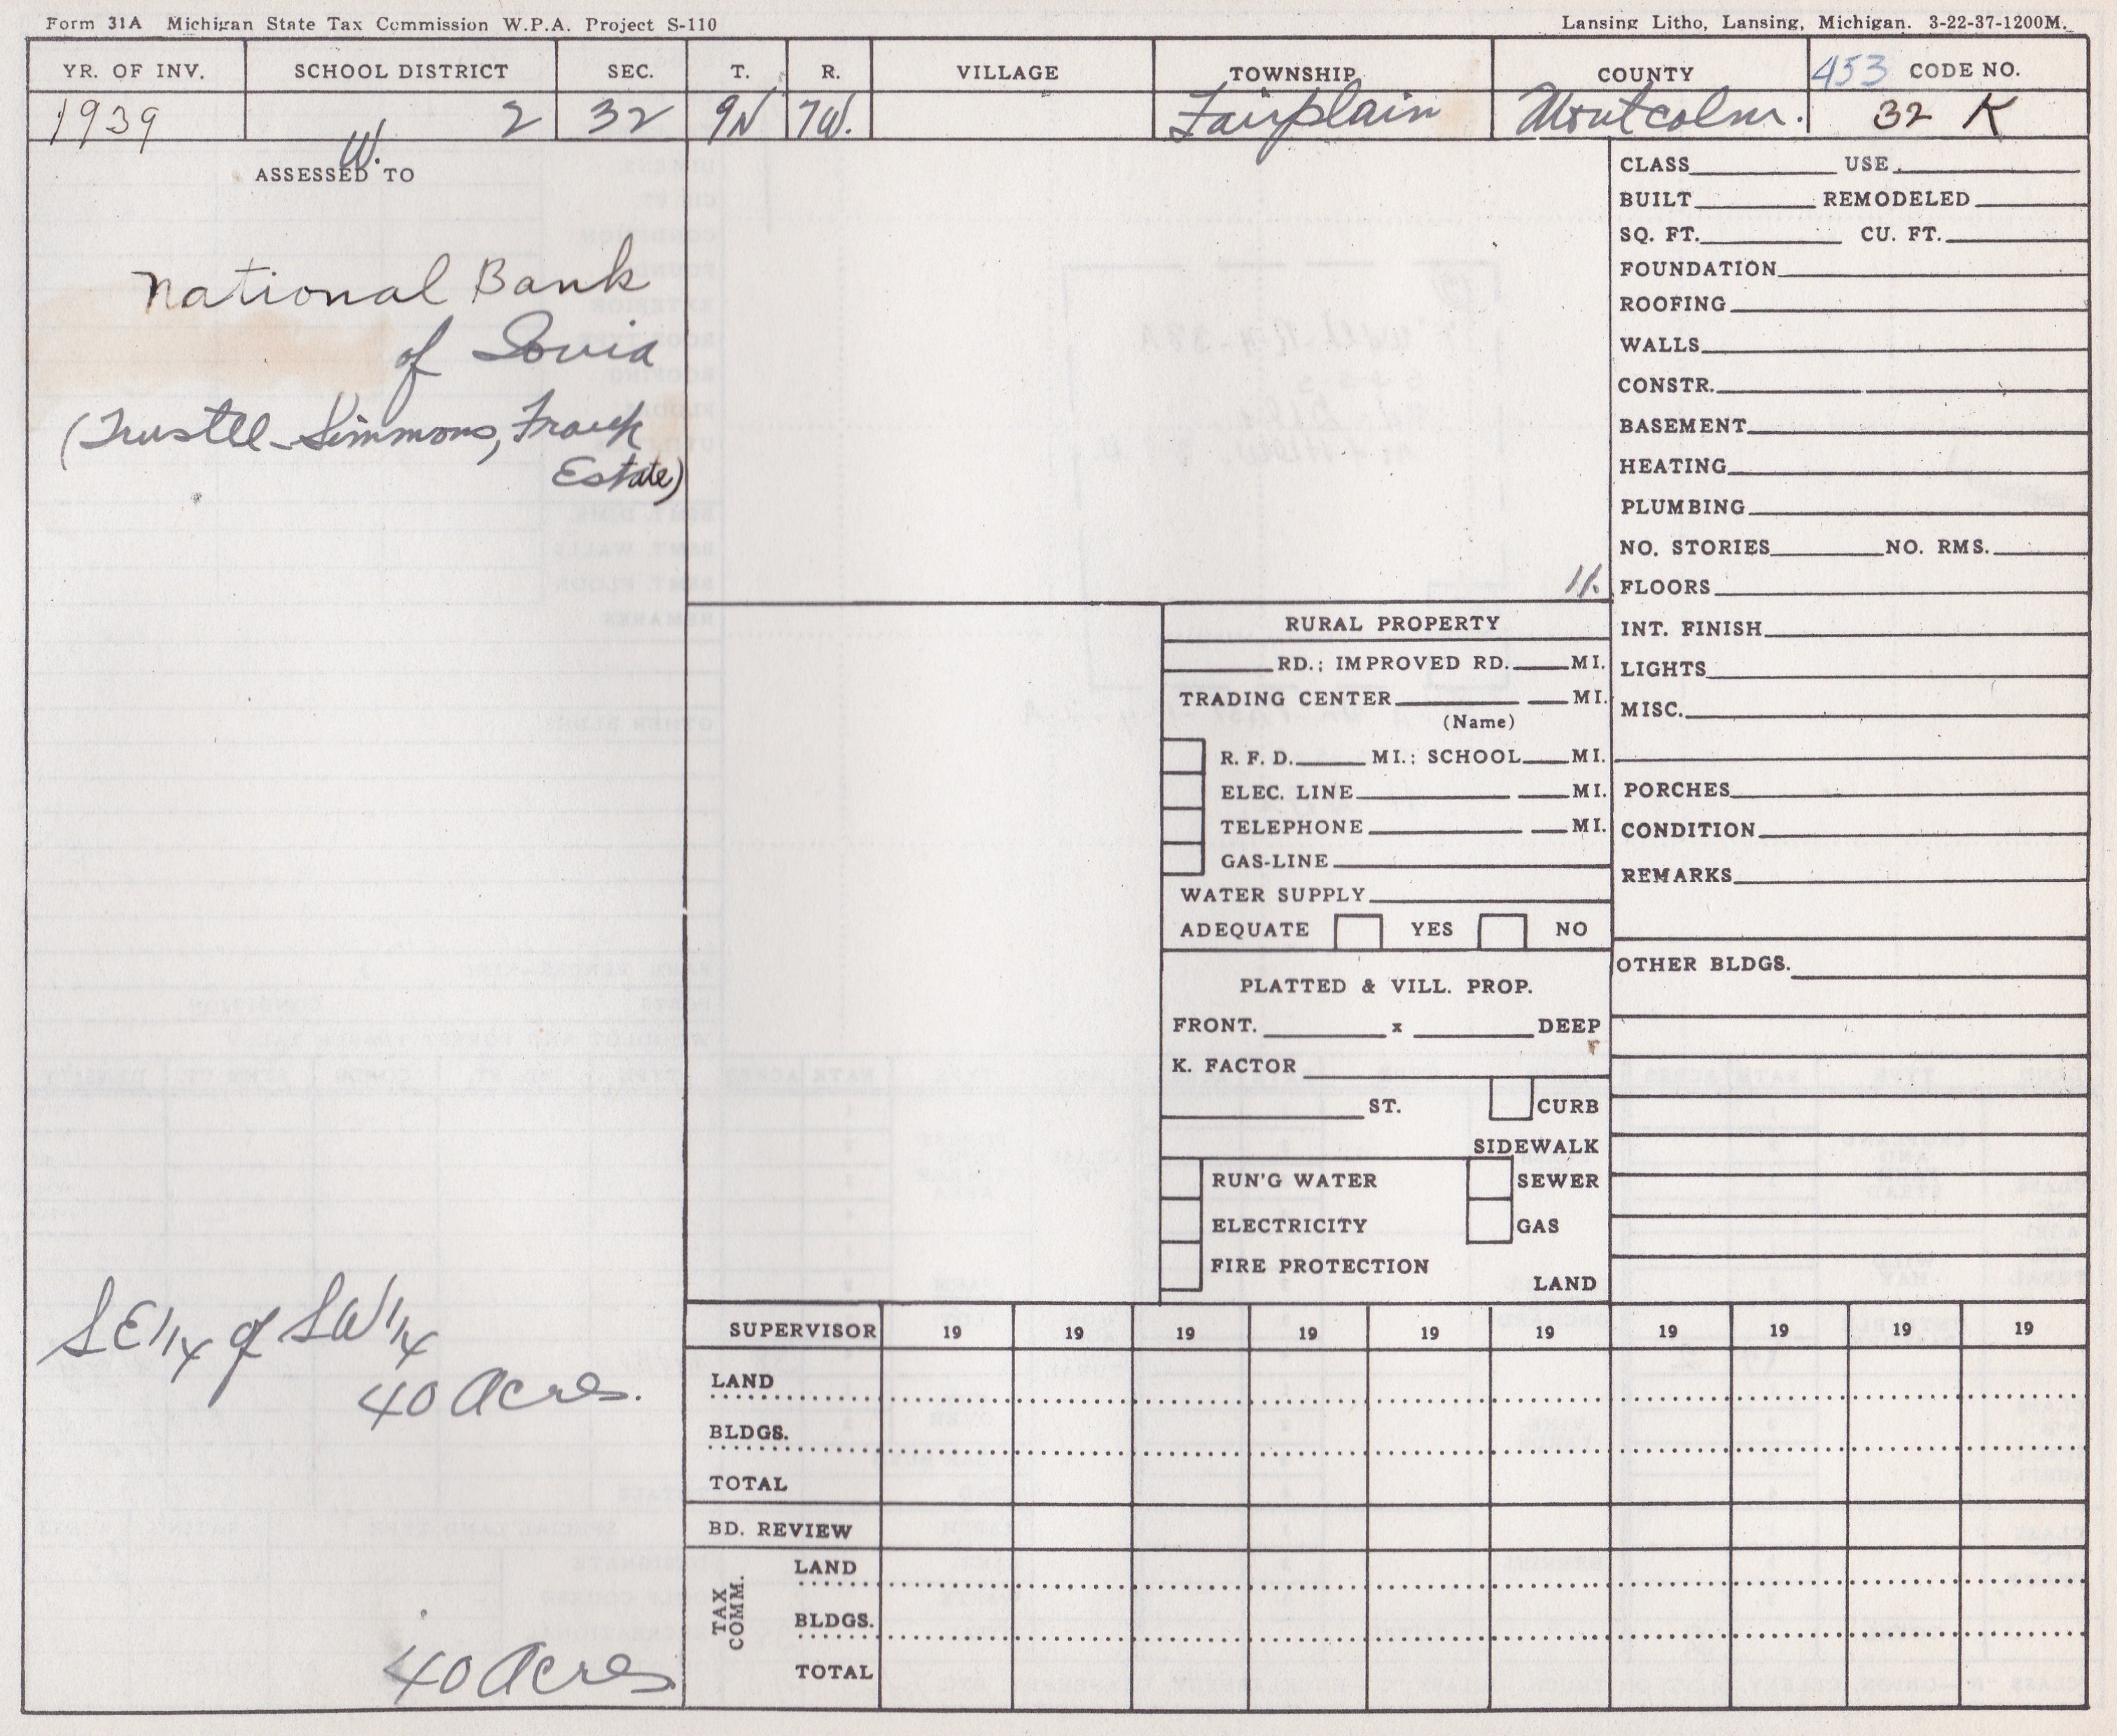 Form 31A Michigan State Tax Commission W.P.A. Project S-110
Lansing Litho, Lansing, Michigan. 3-22-37-1200M.
YR. OF INV. SCHOOL DISTRICT SEC. T. R. VILLAGE TOWNSHIP COUNTY 453 CODE NO.
1939 2 32 9N 7W. Fairplain Montcalm. 32 K
W.
ASSESSED TO
National Bank
of Ionia
(Trustee Simmons, Frank
Estate)
SE 1/4 of SW 1/4
40 Acres.
40 Acres
11.
RURAL PROPERTY
RD.; IMPROVED RD. MI.
TRADING CENTER MI.
(Name)
R. F. D. MI.; SCHOOL MI.
ELEC. LINE MI.
TELEPHONE MI.
GAS-LINE
WATER SUPPLY
ADEQUATE YES NO
PLATTED & VILL. PROP.
FRONT. x DEEP
K. FACTOR
ST. CURB
SIDEWALK
RUN'G WATER SEWER
ELECTRICITY GAS
FIRE PROTECTION
LAND
CLASS USE
BUILT REMODELED
SQ. FT. CU. FT.
FOUNDATION
ROOFING
WALLS
CONSTR.
BASEMENT
HEATING
PLUMBING
NO. STORIES NO. RMS.
FLOORS
INT. FINISH
LIGHTS
MISC.
PORCHES
CONDITION
REMARKS
OTHER BLDGS.
SUPERVISOR 19 19 19 19 19 19 19 19 19 19
LAND
BLDGS.
TOTAL
BD. REVIEW
TAX COMM.
LAND
BLDGS.
TOTAL